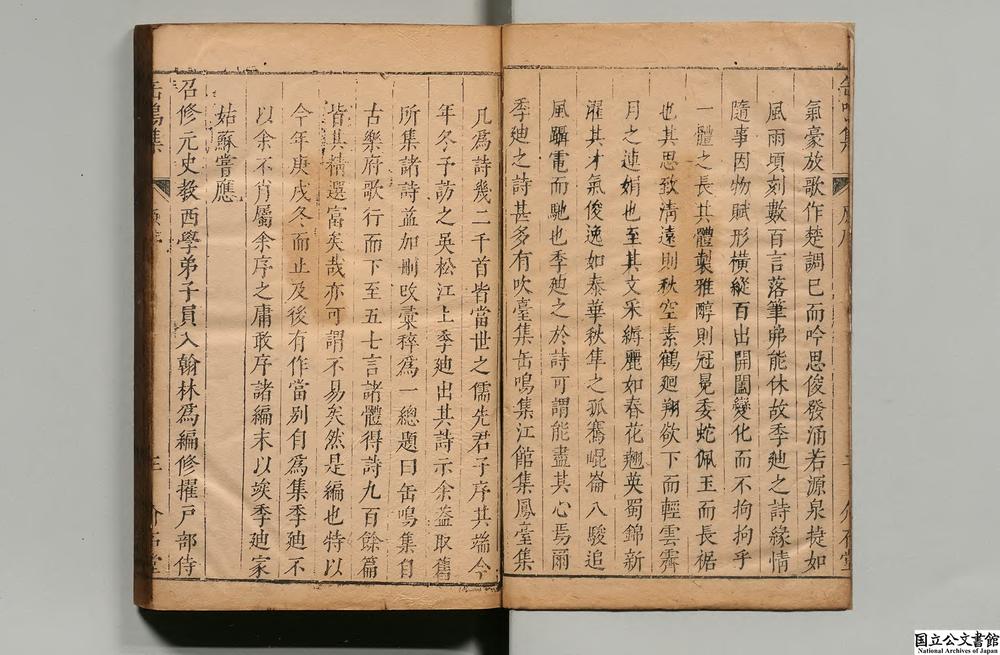 氣豪放歌作楚調已而吟思俊發涌若源泉捷如
風雨頃刻數百言落筆弗能休故季廸之詩緣情
隨事因物賦形橫縱百出開闔變化而不拘拘乎
一體之長其體製雅醇則冠冕委蛇佩玉而長裾
也其思致清遠則秋空素鶴廻翔欲下而輕雲霽
月之連娟也至其文采縟麗如春花翹英蜀錦新
濯其才氣俊逸如泰華秋隼之孤騫崐崙八駿追
風躡電而馳也季廸之於詩可謂能盡其心焉爾
季廸之詩甚多有吹臺集缶鳴集江館集鳳臺集
凡爲詩幾二千首皆當世之儒先君子序其端今
年冬予訪之吳松江上季廸出其詩示余葢取舊
所集諸詩益加刪改彙稡爲一總題曰缶鳴集自
古樂府歌行而下至五七言諸體得詩九百餘篇
皆其精選富矣哉亦可謂不易矣然是編也特以
今年庚戌冬而止及後有作當别自爲集季廸不
以余不肖屬余序之庸敢序諸編末以俟季廸家
姑蘇嘗應
召修元史教西學弟子員入翰林爲編修擢戸部侍
缶鳴集
國立公文書館
National Archives of Japan